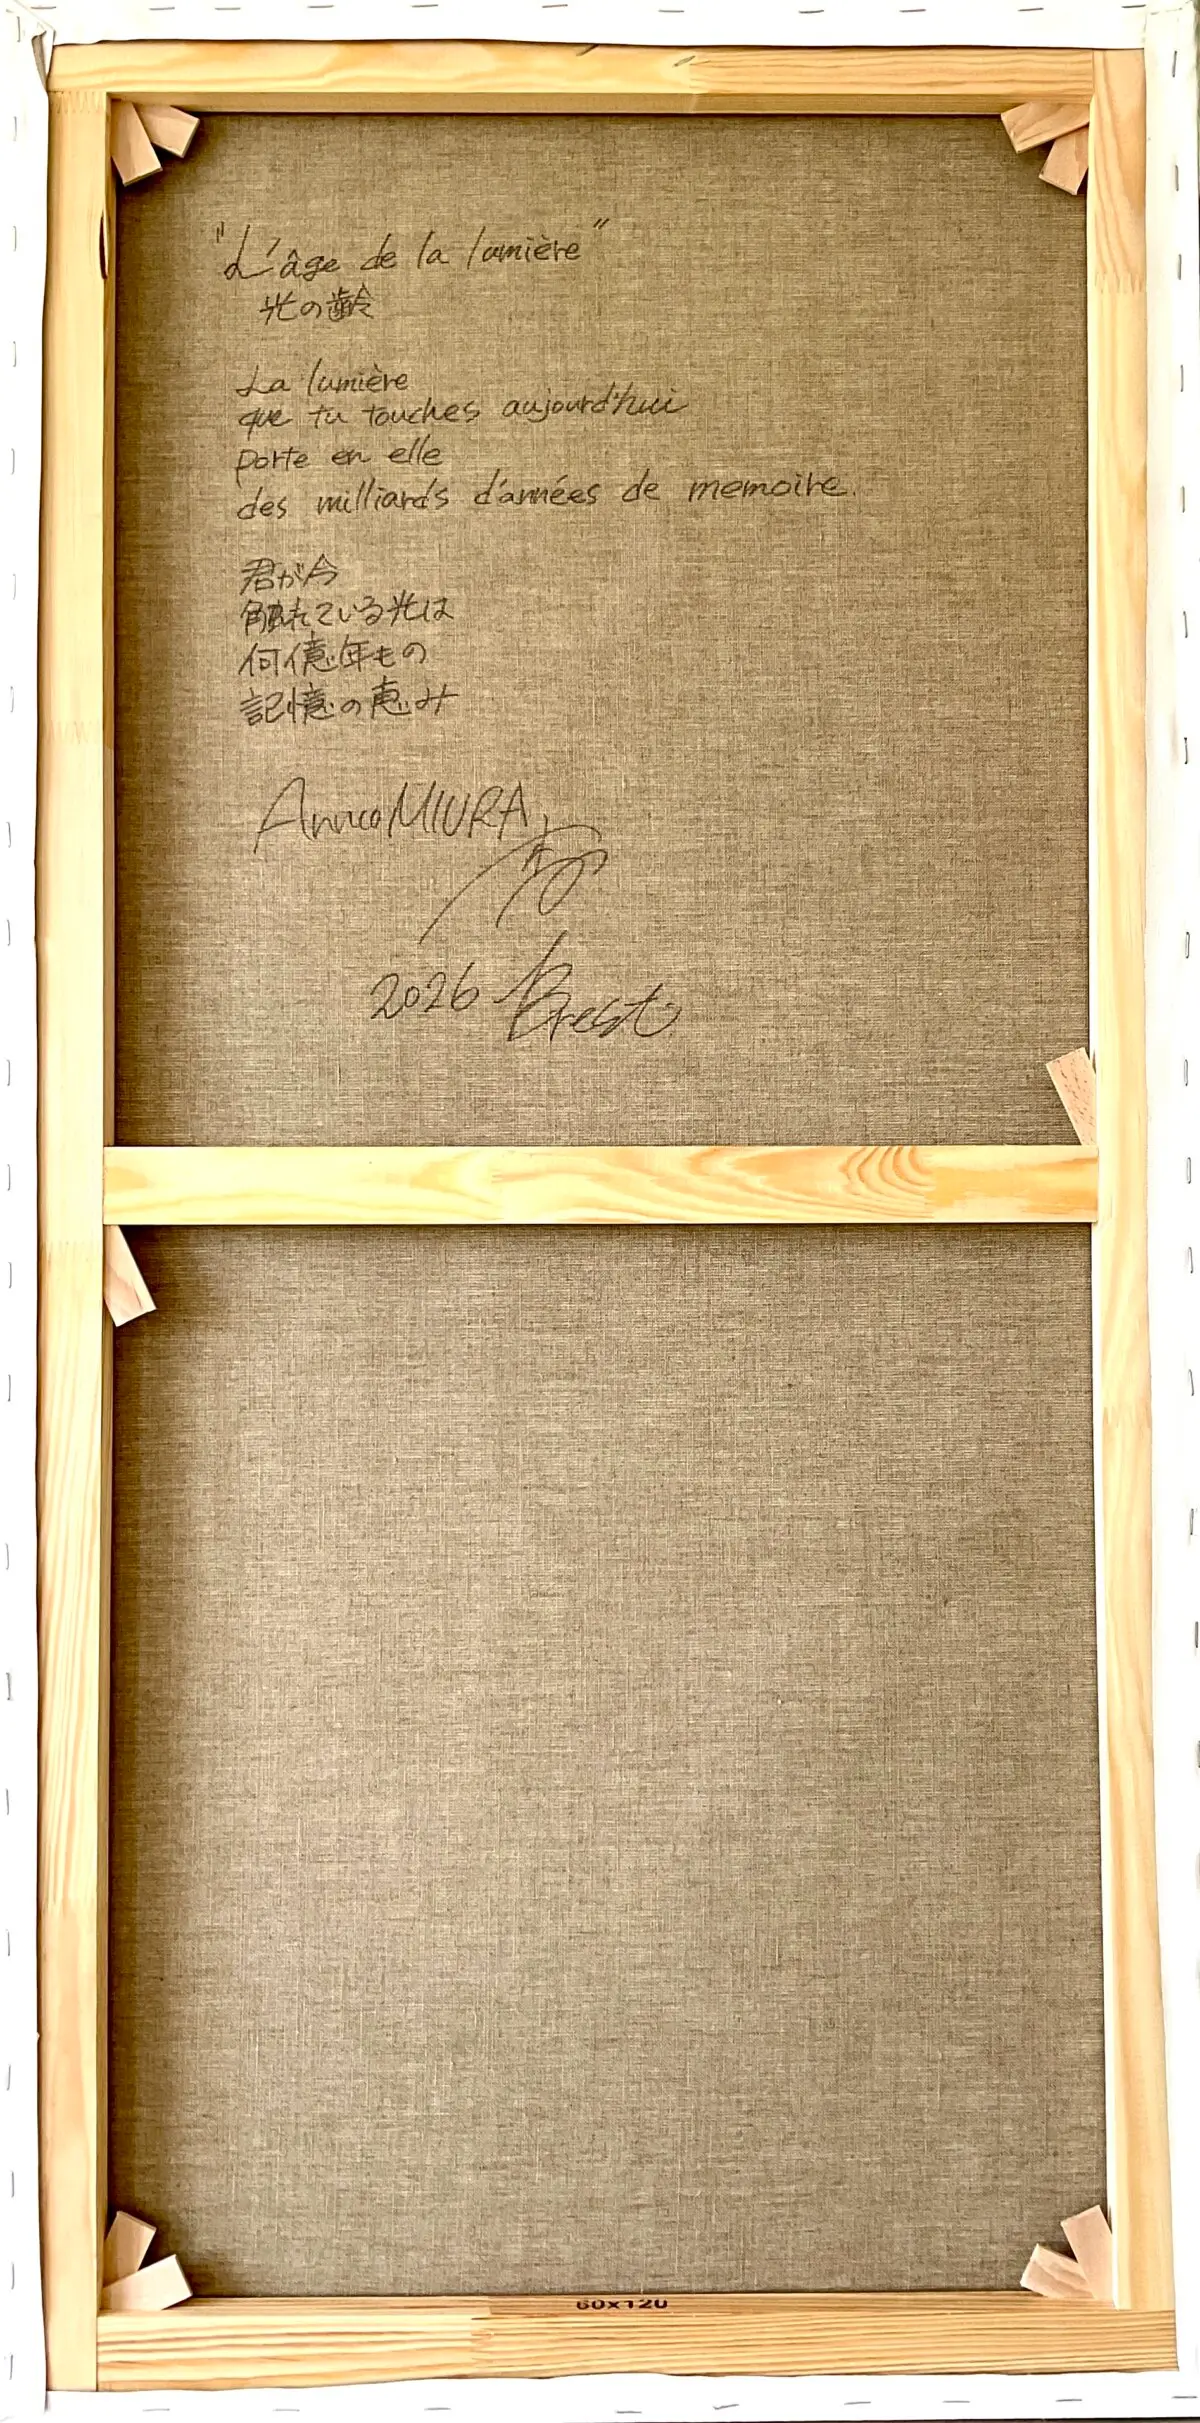 "L'âge de la lumière"
光の齢
La lumière
que tu touches aujourd'hui
porte en elle
des milliards d'années de memoire.
君が今
触れている光は
何億年もの
記憶の恵み
Annco MIURA
2026 Brest
60x120